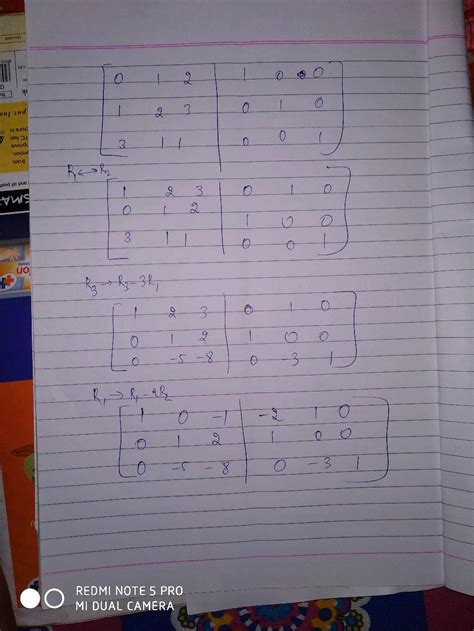 0 1 2 | 1 0 0
1 2 3 | 0 1 0
3 1 1 | 0 0 1
R₁↔R₂
1 2 3 | 0 1 0
0 1 2 | 1 0 0
3 1 1 | 0 0 1
R₃→R₃-3R₁
1 2 3 | 0 1 0
0 1 2 | 1 0 0
0 -5 -8 | 0 -3 1
R₁→R₁-2R₂
1 0 -1 | -2 1 0
0 1 2 | 1 0 0
0 -5 -8 | 0 -3 1
REDMI NOTE 5 PRO
MI DUAL CAMERA